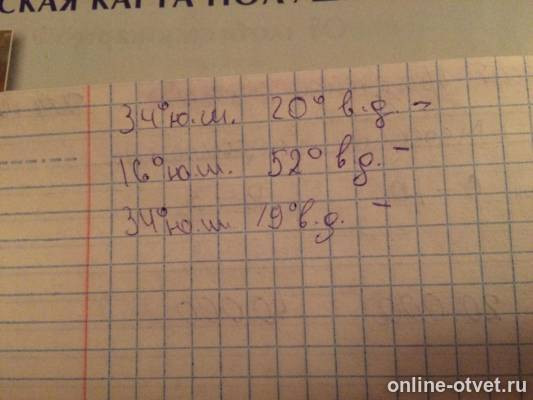 СКАЯ КАРТА ПОЛУШ
34° ю.ш. 20° в.д. –
16° ю.ш. 52° в.д. –
34° ю.ш 19° в.д. –
online-otvet.ru